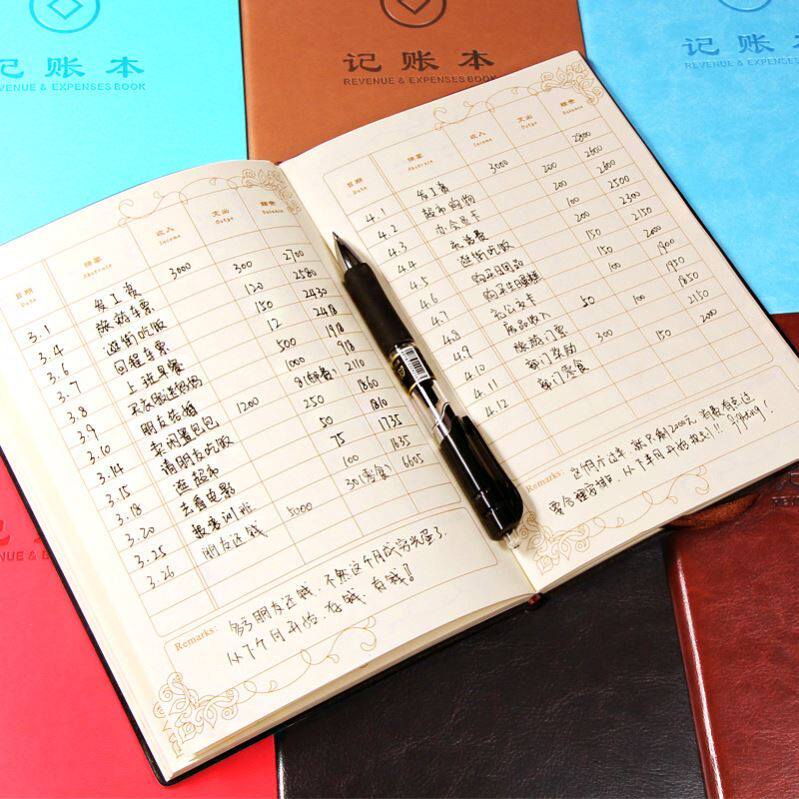 记账本
REVENUE & EXPENSES BOOK
记账本
REVENUE & EXPENSES BOOK
记账本
REVENUE & EXPENSES BOOK
日期 摘要 收入 支出 结余
Date Abstrate Income Outgo Balance
3.1 发工资 3000 300 2700
3.4 旅游车票 120 2580
3.6 逛街吃饭 150 2430
3.7 回程车票 12 2418
3.8 上班早餐 500 1918
3.9 1000 918
3.10 朋友结婚 1200 8(邮费) 2110
3.14 卖闲置包包 250 1860
3.15 请朋友吃饭 50 1810
3.18 逛超市 75 1735
3.20 去看电影 100 1635
3.25 报培训班 5000 30(零食) 6605
3.26 朋友还钱
Remarks: 多亏朋友还钱,不然这个月成穷光蛋了.
从下个月开始,存钱 存钱!
日期 摘要 收入 支出 结余
Date Abstrate Income Outgo Balance
4.1 发工资 3000 200 2800
4.2 超市购物 200 2600
4.3 办会员卡 2600
4.4 充话费 100 2500
4.5 逛街吃饭 200 2300
4.6 购买日用品 150 2150
4.7 购买生日蛋糕 150 2000
4.8 公交卡 100 1900
4.9 50 1950
4.10 旅游门票 100 1850
4.11 部门奖励 300 2150
4.12 部门零食 150 2000
Remarks: 这个月才过半,就只剩2000元,消费有点过
要合理安排,从下半月开始 Fighting!
REVENUE & EXPENSES BOOK